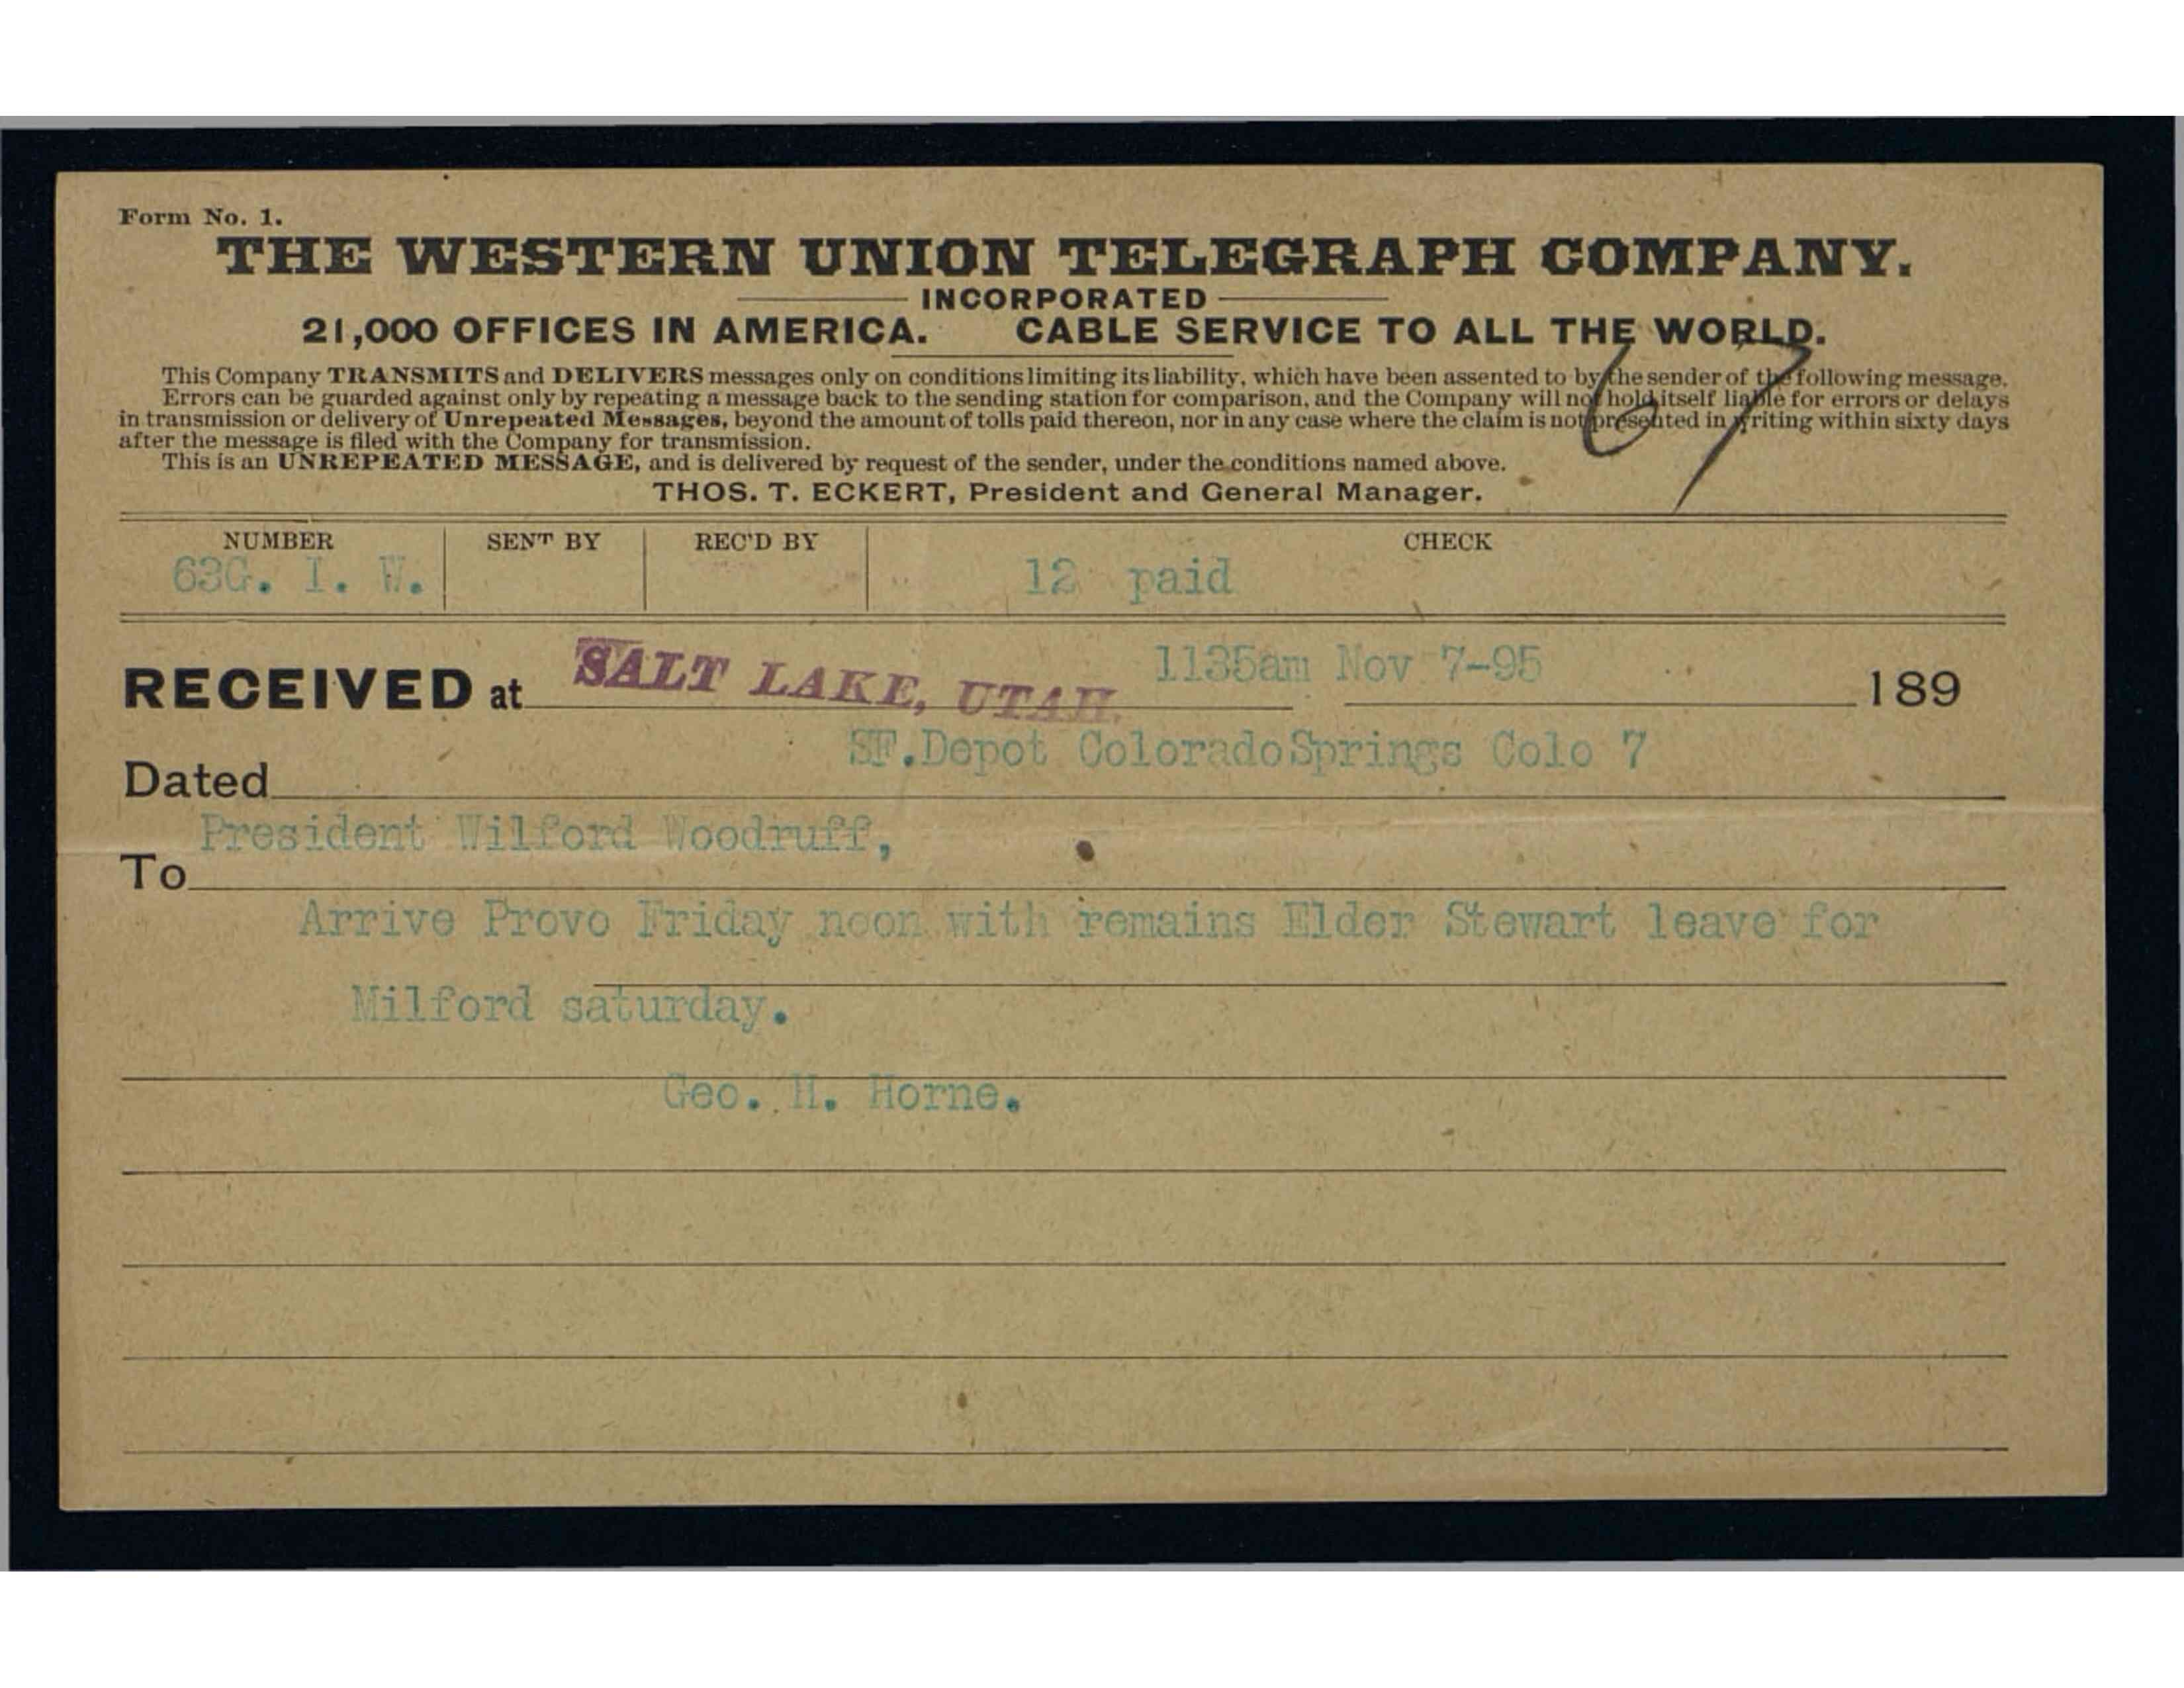 Form No. 1.
THE WESTERN UNION TELEGRAPH COMPANY.
INCORPORATED
21,000 OFFICES IN AMERICA. CABLE SERVICE TO ALL THE WORLD.
This Company TRANSMITS and DELIVERS messages only on conditions limiting its liability, which have been assented to by the sender of the following message.
Errors can be guarded against only by repeating a message back to the sending station for comparison, and the Company will not hold itself liable for errors or delays
in transmission or delivery of Unrepeated Messages, beyond the amount of tolls paid thereon, nor in any case where the claim is not presented in writing within sixty days
after the message is filed with the Company for transmission.
This is an UNREPEATED MESSAGE, and is delivered by request of the sender, under the conditions named above.
67
THOS. T. ECKERT, President and General Manager.
NUMBER SENT BY REC'D BY CHECK
63G. I. W. 12 paid
RECEIVED at SALT LAKE, UTAH. 1135am Nov 7-95 189
SF.Depot ColoradoSprings Colo 7
Dated
President Wilford Woodruff,
To
Arrive Provo Friday noon with remains Elder Stewart leave for
Milford saturday.
Geo. H. Horne.